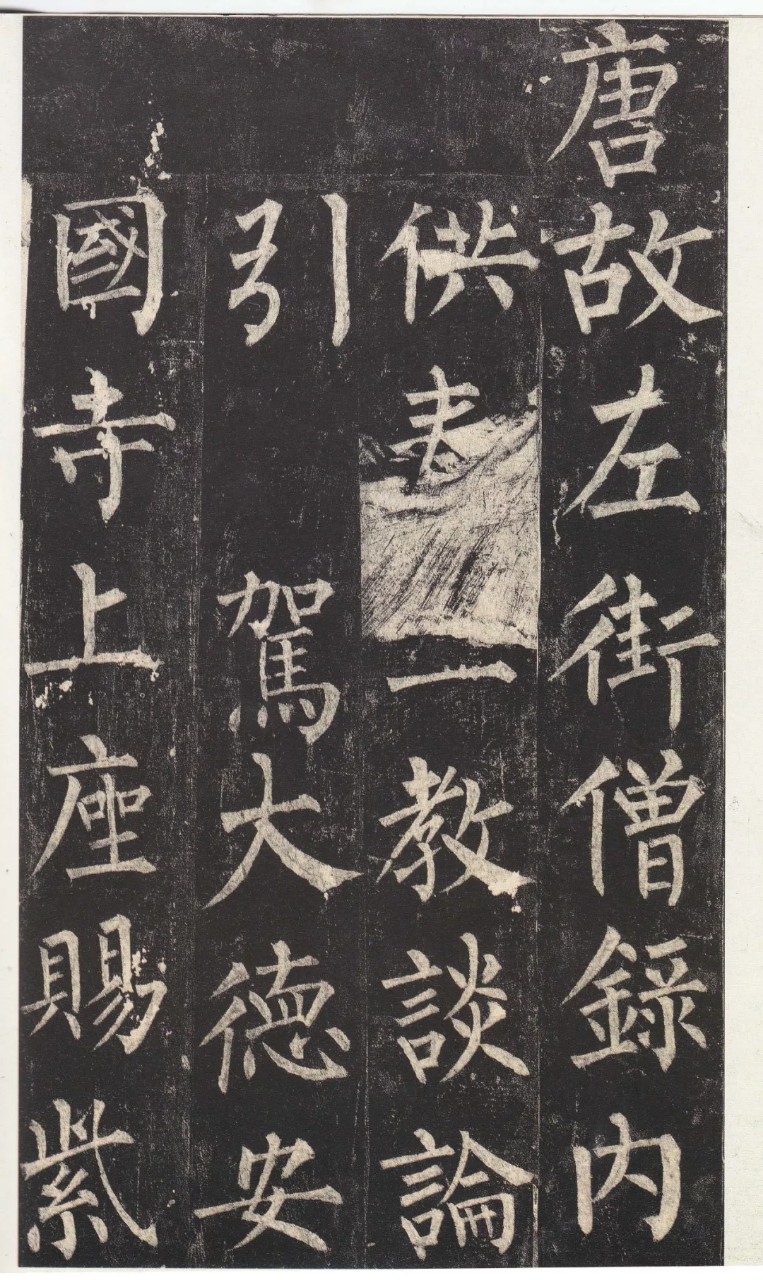 唐故左街僧錄内
供教談論
引駕大徳安
國寺上座賜紫